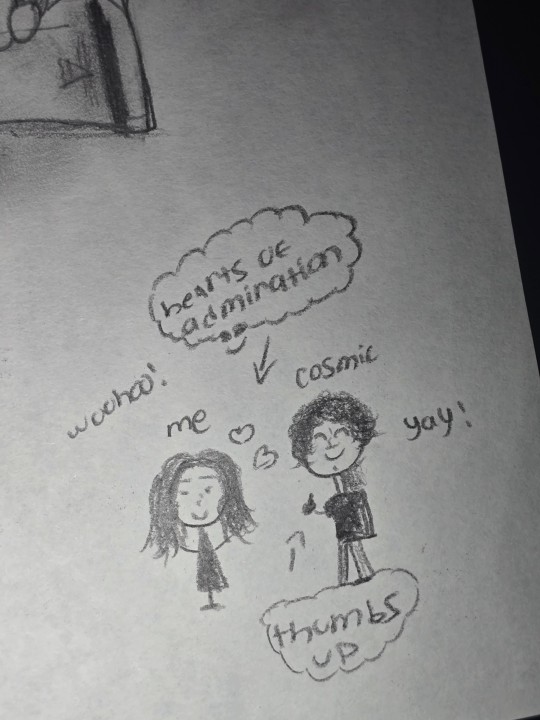 hearts of
admiration
woohoo!
me
cosmic
yay!
thumbs
up